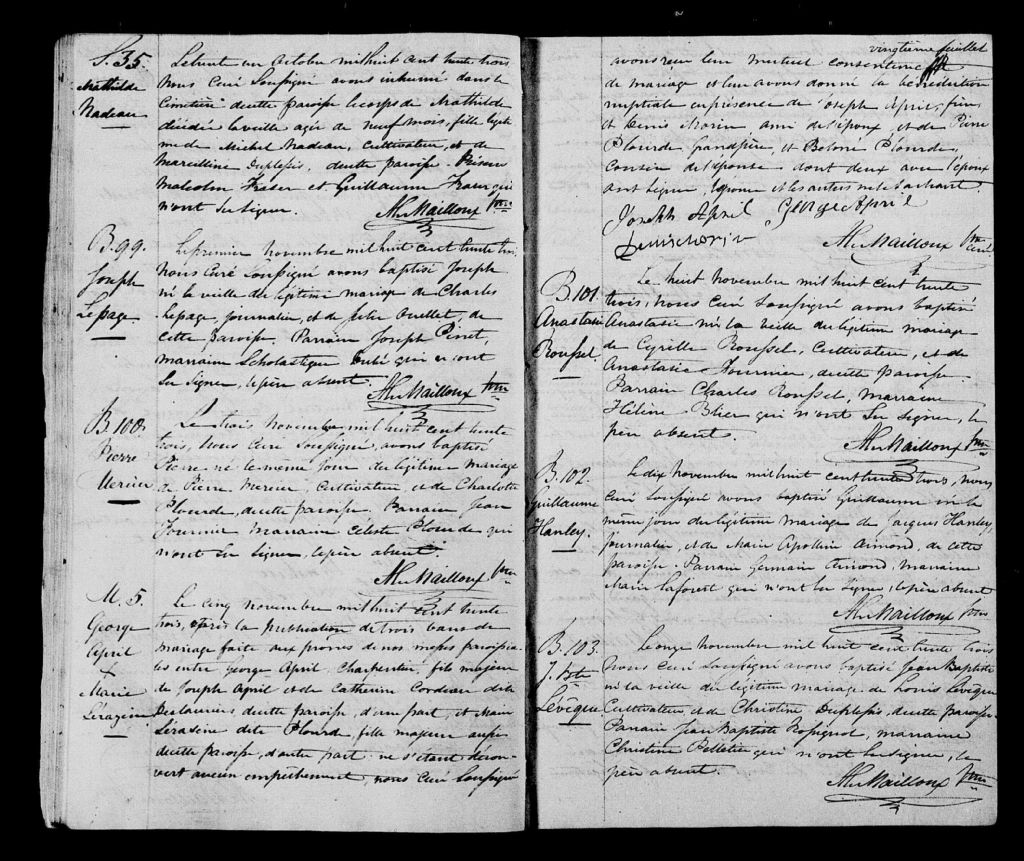 S. 35.
Mathilde
Nadeau
Le trente un octobre mil huit cent trente trois
Nous Curé Soussigné avons inhumé dans le
Cimetière de cette paroisse le corps de Mathilde
décédée la veille agée de neuf mois, fille légiti
me de Michel Nadeau, Cultivateur, et de
Marcelline Duplessis, de cette paroisse. Présens
Malcolm Fraser et Guillaume Fraser qui
n'ont su signer.
Al. Mailloux Ptre
B. 99.
Joseph
Lepage
Le premier novembre mil huit cent trente trois
Nous Curé Soussigné avons baptisé Joseph
né la veille du légitime mariage de Charles
Lepage, journalier, et de Julie Ouellet, de
cette paroisse. Parrain Joseph Pinet,
marraine Scholastique qui n'ont
su signer, le père absent.
Al. Mailloux Ptre
B. 100.
Pierre
Mercier
Le trois Novembre mil huit cent trente
trois, Nous Curé Soussigné, avons baptisé
Pierre né le même jour du légitime mariage
de Pierre Mercier, Cultivateur, et de Charlotte
Plourde, de cette paroisse. Parrain Jean
Fournier marraine Céleste Plourde qui
n'ont su signer, le père absent.
Al. Mailloux Ptre
M. 5.
George
April
+
Marie
Lérazeine
Le cinq novembre mil huit cent trente
trois, après la publication de trois bans de
mariage faite aux prônes de nos messes paroissia
les entre George April, Charpentier, fils majeur
de Joseph April et de Catherine Cordeau dite
Deslauriers, de cette paroisse, d'une part, et Marie
dite Plourd, fille majeure aussi
de cette paroisse, d'autre part: ne s'étant décou
vert aucun empêchement, nous Curé Soussigné
vingtième feuillet
avons reçu leur mutuel consentement
de mariage et leur avons donné la bénédiction
nuptiale en présence de Joseph April, père
et Denis Morin, ami de l'époux, et de Pierre
Plourde, grandpère, et Plourde,
cousin de l'épouse dont deux avec l'époux
ont signé, l'épouse et les autres ne le sachant.
Joseph April George April
Denis morin Al. Mailloux Ptre
Curé
B. 101.
Anastasie
Roussel
Le huit Novembre mil huit cent trente
trois, Nous Curé Soussigné avons baptisé
Anastasie née la veille du légitime mariage
de Cyrille Roussel, Cultivateur, et de
Anastasie Fournier, de cette paroisse.
Parrain Charles Roussel, marraine
Hélène Blier qui n'ont su signer, le
père absent.
Al. Mailloux Ptre
B. 102.
Guillaume
Hanley.
Le dix Novembre mil huit cent trente trois, nous
Curé Soussigné avons baptisé Guillaume né le
même jour du légitime mariage de Jacques Hanley,
journalier, et de Marie Apolline Aimond, de cette
paroisse. Parrain Germain Aimond, marraine
Marie Laforest qui n'ont su signer, le père absent
Al. Mailloux Ptre
B. 103.
J. Bte
Lévêque
Le onze Novembre mil huit cent trente trois
Nous Curé Soussigné avons baptisé Jean Baptiste
né la veille du légitime mariage de Louis Lévêque
Cultivateur et de Christine Duplessis, de cette paroisse.
Parrain Jean Baptiste Rossignol, marraine
Christine Pelletier qui n'ont su signer, le
père absent.
Al. Mailloux Ptre